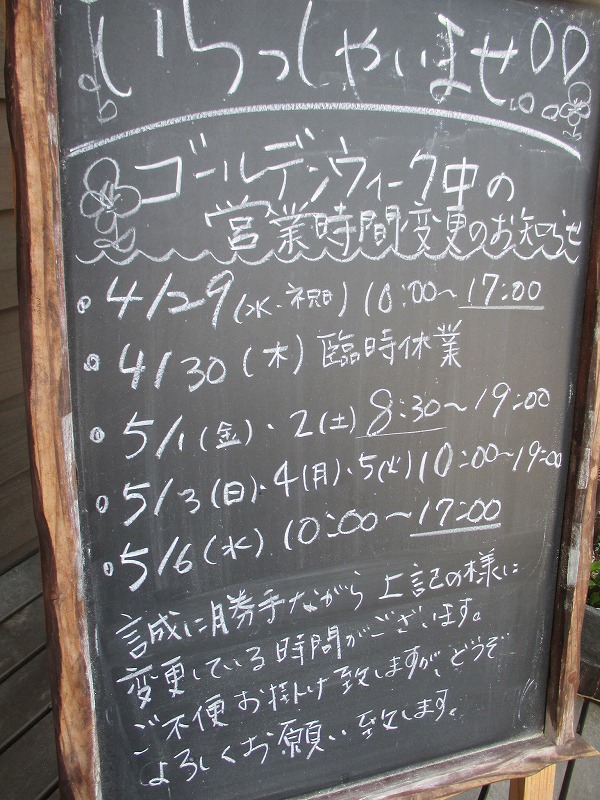 いらっしゃいませ
ゴールデンウィーク中の
営業時間変更のお知らせ
4/29(水・祝日) 10:00～17:00
4/30(木) 臨時休業
5/1(金)・2(土) 8:30～19:00
5/3(日)・4(月)・5(火) 10:00～19:00
5/6(水) 10:00～17:00
誠に勝手ながら 上記の様に
変更している時間がございます。
ご不便お掛け致しますが、どうぞ
よろしくお願い致します。